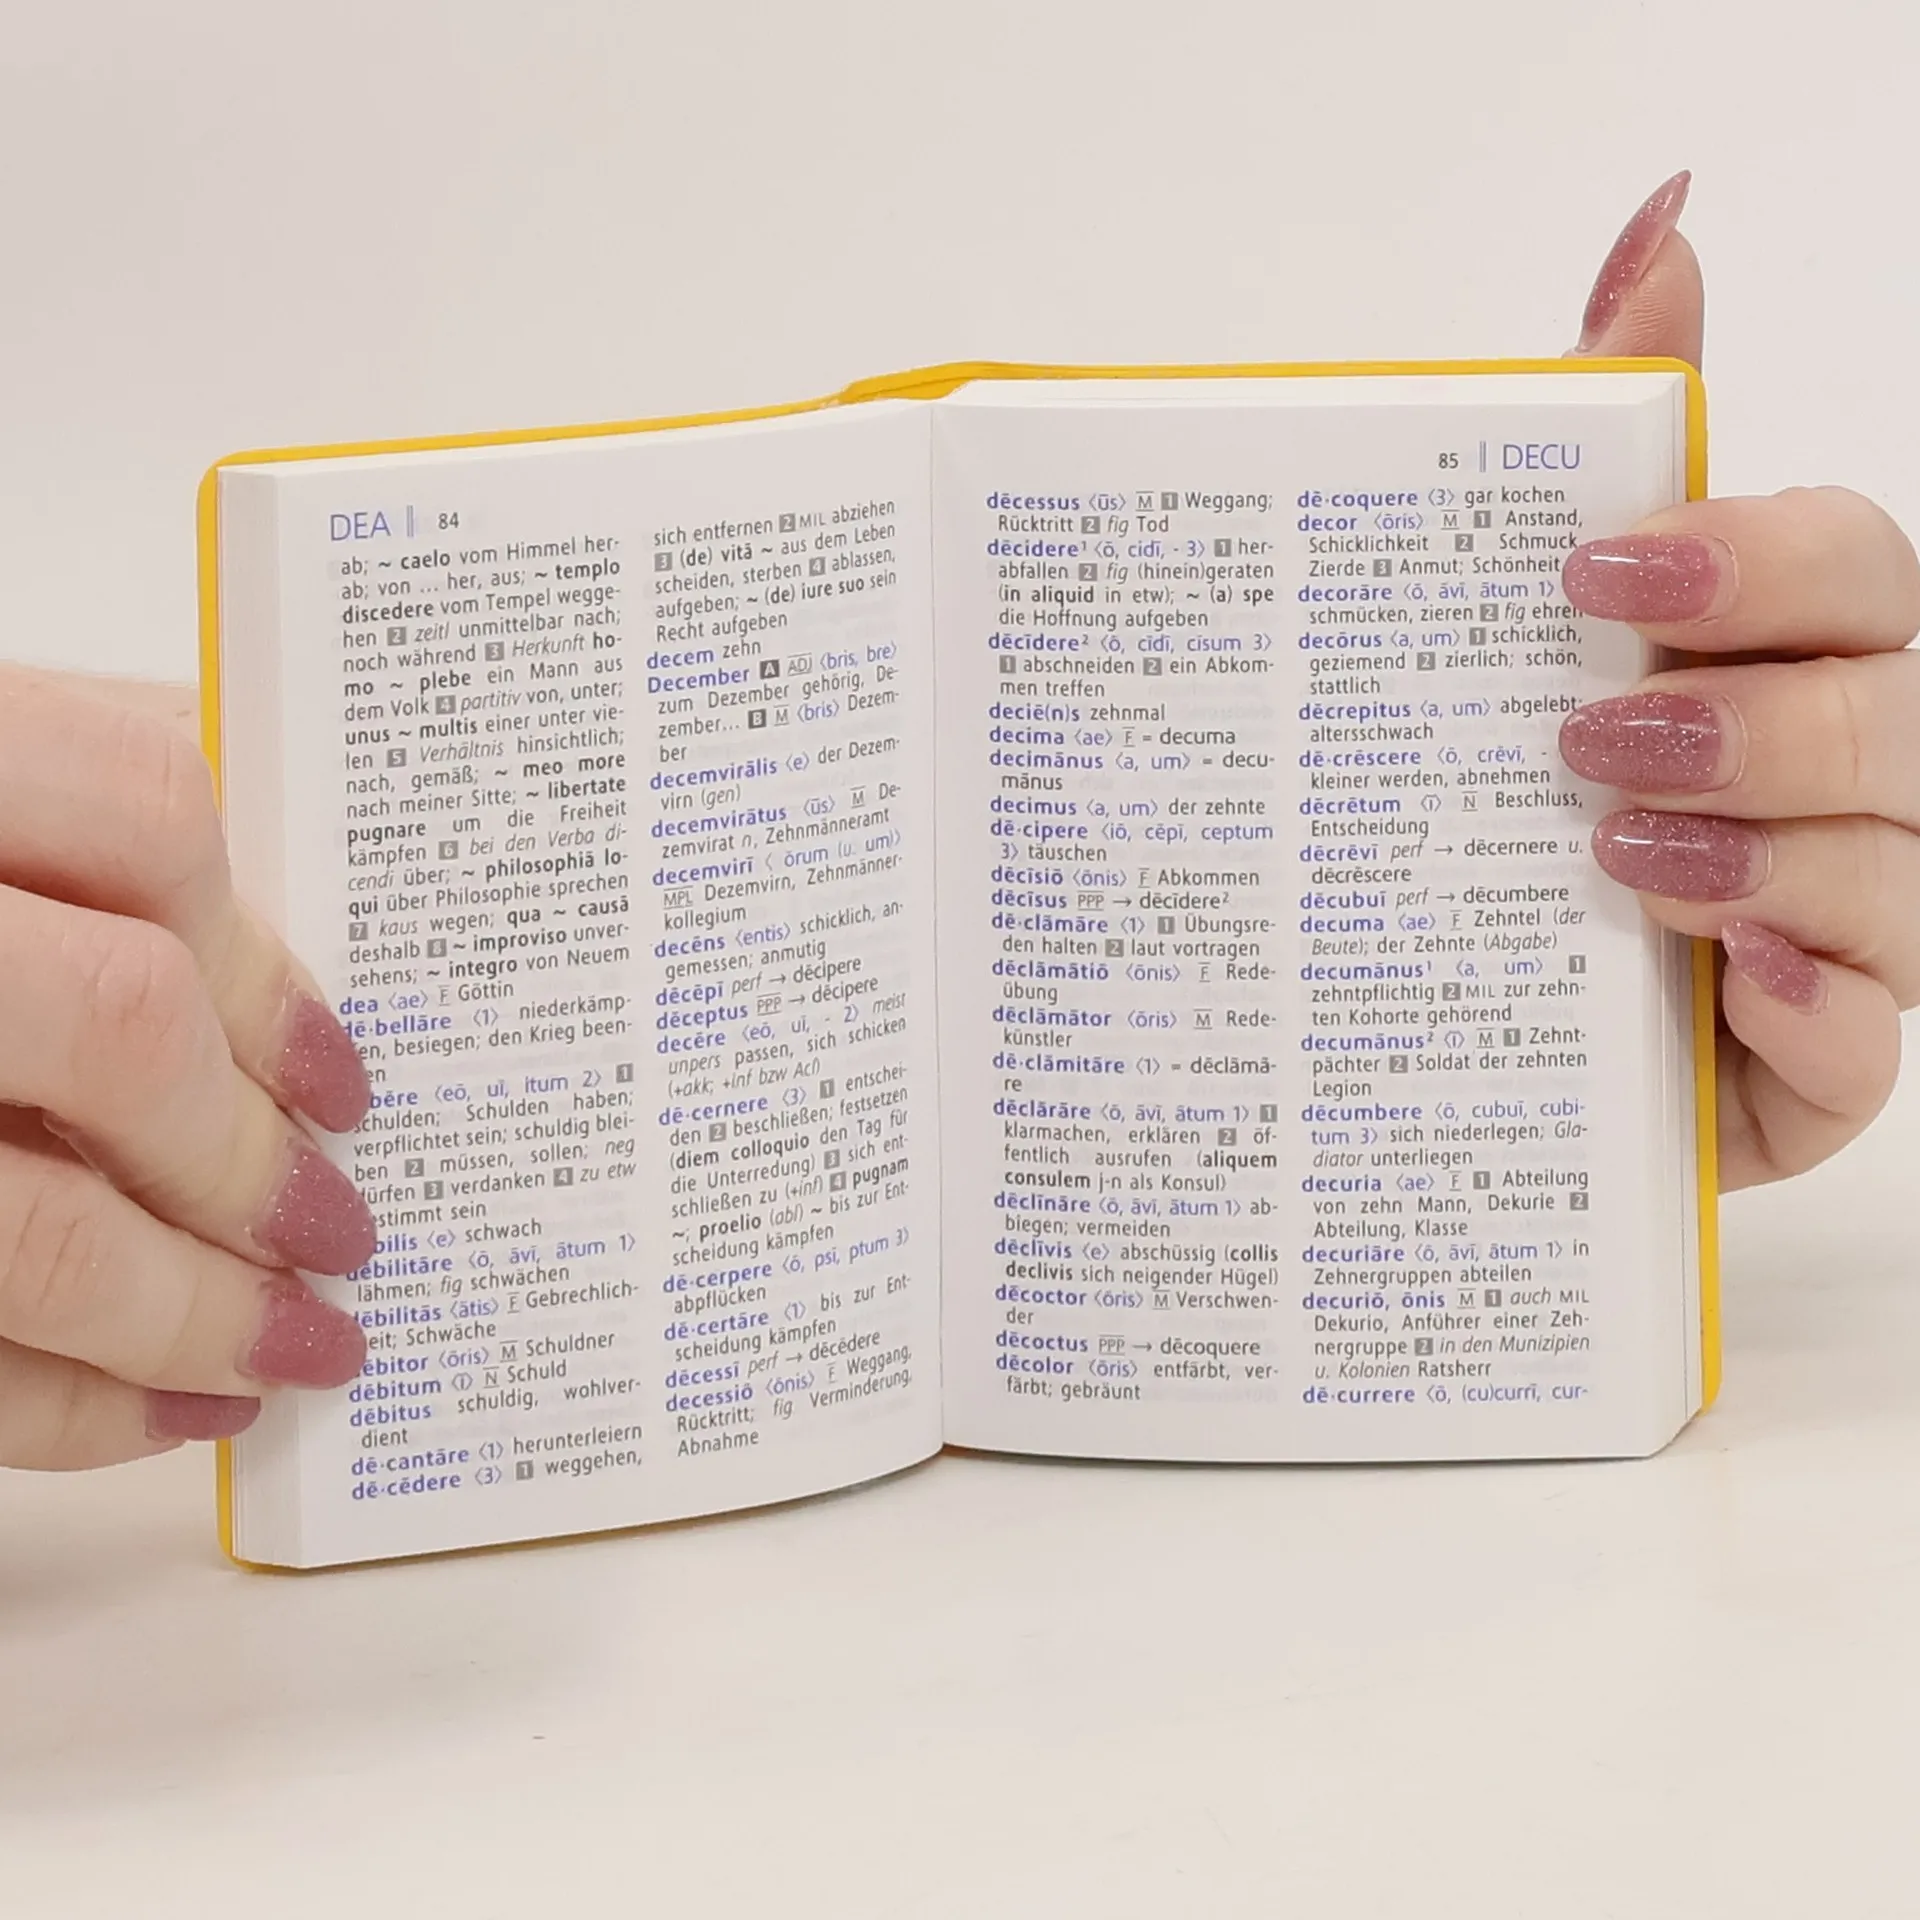 DEA 84
ab; ~ caelo vom Himmel her-
ab; von ... her, aus; ~ templo
discedere vom Tempel wegge-
hen 2 zeitl unmittelbar nach;
noch während 3 Herkunft ho-
mo ~ plebe ein Mann aus
dem Volk 4 partitiv von, unter;
unus ~ multis einer unter vie-
len 5 Verhältnis hinsichtlich;
nach, gemäß; ~ meo more
nach meiner Sitte; ~ libertate
pugnare um die Freiheit
kämpfen 6 bei den Verba di-
cendi über; ~ philosophiā lo-
qui über Philosophie sprechen
7 kaus wegen; qua ~ causā
deshalb 8 ~ improviso unver-
sehens; ~ integro von Neuem
dea ⟨ae⟩ F Göttin
dē·bellāre ⟨1⟩ niederkämp-
en, besiegen; den Krieg been-
en
bēre ⟨eō, uī, itum 2⟩ 1
schulden; Schulden haben;
verpflichtet sein; schuldig blei-
ben 2 müssen, sollen; neg
dürfen 3 verdanken 4 zu etw
stimmt sein
bilis ⟨e⟩ schwach
dēbilitāre ⟨ō, āvī, ātum 1⟩
lähmen; fig schwächen
dēbilitās ⟨ātis⟩ F Gebrechlich-
eit; Schwäche
dēbitor ⟨ōris⟩ M Schuldner
dēbitum ⟨ī⟩ N Schuld
dēbitus schuldig, wohlver-
dient
dē·cantāre ⟨1⟩ herunterleiern
dē·cēdere ⟨3⟩ 1 weggehen,
sich entfernen 2 MIL abziehen
3 (de) vitā ~ aus dem Leben
scheiden, sterben 4 ablassen,
aufgeben; ~ (de) iure suo sein
Recht aufgeben
decem zehn
December A ADJ ⟨bris, bre⟩
zum Dezember gehörig, De-
zember... B M ⟨bris⟩ Dezem-
ber
decemvirālis ⟨e⟩ der Dezem-
virn (gen)
decemvirātus ⟨ūs⟩ M De-
zemvirat n, Zehnmänneramt
decemvirī ⟨ōrum (u. um)⟩
MPL Dezemvirn, Zehnmänner-
kollegium
decēns ⟨entis⟩ schicklich, an-
gemessen; anmutig
dēcēpī perf → dēcipere
dēceptus PPP → dēcipere
decēre ⟨eō, uī, - 2⟩ meist
unpers passen, sich schicken
(+akk; +inf bzw AcI)
dē·cernere ⟨3⟩ 1 entschei-
den 2 beschließen; festsetzen
(diem colloquio den Tag für
die Unterredung) 3 sich ent-
schließen zu (+inf) 4 pugnam
~; proelio (abl) ~ bis zur Ent-
scheidung kämpfen
dē·cerpere ⟨ō, psī, ptum 3⟩
abpflücken
dē·certāre ⟨1⟩ bis zur Ent-
scheidung kämpfen
dēcessī perf → dēcēdere
dēcessiō ⟨ōnis⟩ F Weggang,
Rücktritt; fig Verminderung,
Abnahme
85 DECU
dēcessus ⟨ūs⟩ M 1 Weggang;
Rücktritt 2 fig Tod
dēcidere¹ ⟨ō, cidī, - 3⟩ 1 her-
abfallen 2 fig (hinein)geraten
(in aliquid in etw); ~ (a) spe
die Hoffnung aufgeben
dēcīdere² ⟨ō, cīdī, cīsum 3⟩
1 abschneiden 2 ein Abkom-
men treffen
deciē(n)s zehnmal
decima ⟨ae⟩ F = decuma
decimānus ⟨a, um⟩ = decu-
mānus
decimus ⟨a, um⟩ der zehnte
dē·cipere ⟨iō, cēpī, ceptum
3⟩ täuschen
dēcīsiō ⟨ōnis⟩ F Abkommen
dēcīsus PPP → dēcīdere²
dē·clāmāre ⟨1⟩ 1 Übungsre-
den halten 2 laut vortragen
dēclāmātiō ⟨ōnis⟩ F Rede-
übung
dēclāmātor ⟨ōris⟩ M Rede-
künstler
dē·clāmitāre ⟨1⟩ = dēclāmā-
re
dēclārāre ⟨ō, āvī, ātum 1⟩ 1
klarmachen, erklären 2 öf-
fentlich ausrufen (aliquem
consulem j-n als Konsul)
dēclīnāre ⟨ō, āvī, ātum 1⟩ ab-
biegen; vermeiden
dēclīvis ⟨e⟩ abschüssig (collis
declivis sich neigender Hügel)
dēcoctor ⟨ōris⟩ M Verschwen-
der
dēcoctus PPP → dēcoquere
dēcolor ⟨ōris⟩ entfärbt, ver-
färbt; gebräunt
dē·coquere ⟨3⟩ gar kochen
decor ⟨ōris⟩ M 1 Anstand,
Schicklichkeit 2 Schmuck,
Zierde 3 Anmut; Schönheit
decorāre ⟨ō, āvī, ātum 1⟩
schmücken, zieren 2 fig ehren
decōrus ⟨a, um⟩ 1 schicklich,
geziemend 2 zierlich; schön,
stattlich
dēcrepitus ⟨a, um⟩ abgelebt;
altersschwach
dē·crēscere ⟨ō, crēvī, -
kleiner werden, abnehmen
dēcrētum ⟨ī⟩ N Beschluss,
Entscheidung
dēcrēvī perf → dēcernere u.
dēcrēscere
dēcubuī perf → dēcumbere
decuma ⟨ae⟩ F Zehntel (der
Beute); der Zehnte (Abgabe)
decumānus¹ ⟨a, um⟩ 1
zehntpflichtig 2 MIL zur zehn-
ten Kohorte gehörend
decumānus² ⟨ī⟩ M 1 Zehnt-
pächter 2 Soldat der zehnten
Legion
dēcumbere ⟨ō, cubuī, cubi-
tum 3⟩ sich niederlegen; Gla-
diator unterliegen
decuria ⟨ae⟩ F 1 Abteilung
von zehn Mann, Dekurie 2
Abteilung, Klasse
decuriāre ⟨ō, āvī, ātum 1⟩ in
Zehnergruppen abteilen
decuriō, ōnis M 1 auch MIL
Dekurio, Anführer einer Zeh-
nergruppe 2 in den Munizipien
u. Kolonien Ratsherr
dē·currere ⟨ō, (cu)currī, cur-